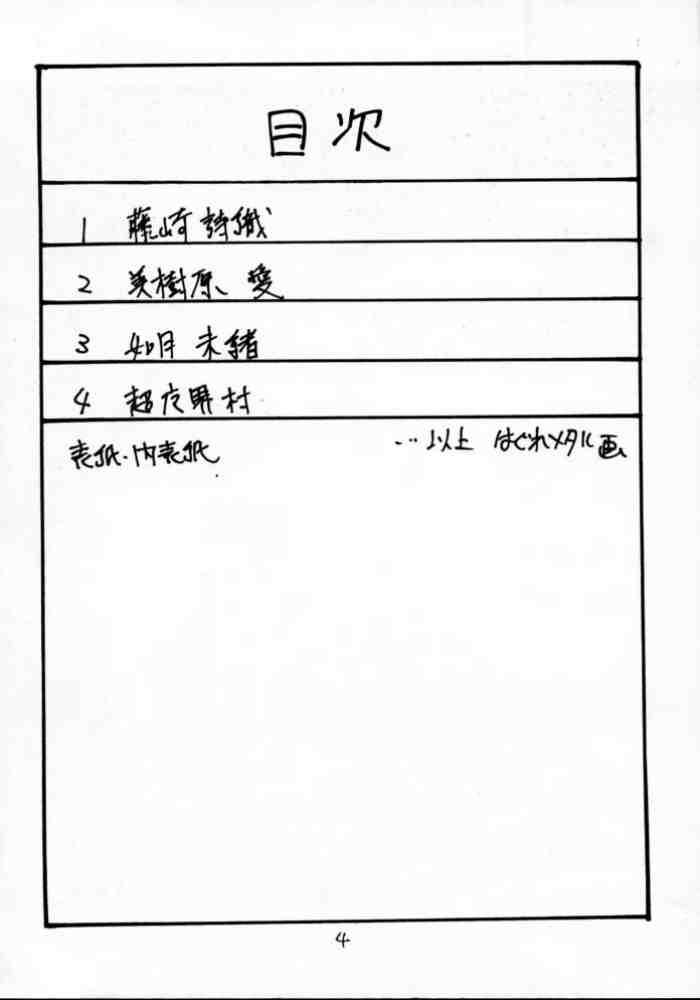 目次
1 藤崎詩織
2 美樹原 愛
3 如月 未緒
4 超庄界村
表紙・内表紙 …以上 はぐれメタル画
4